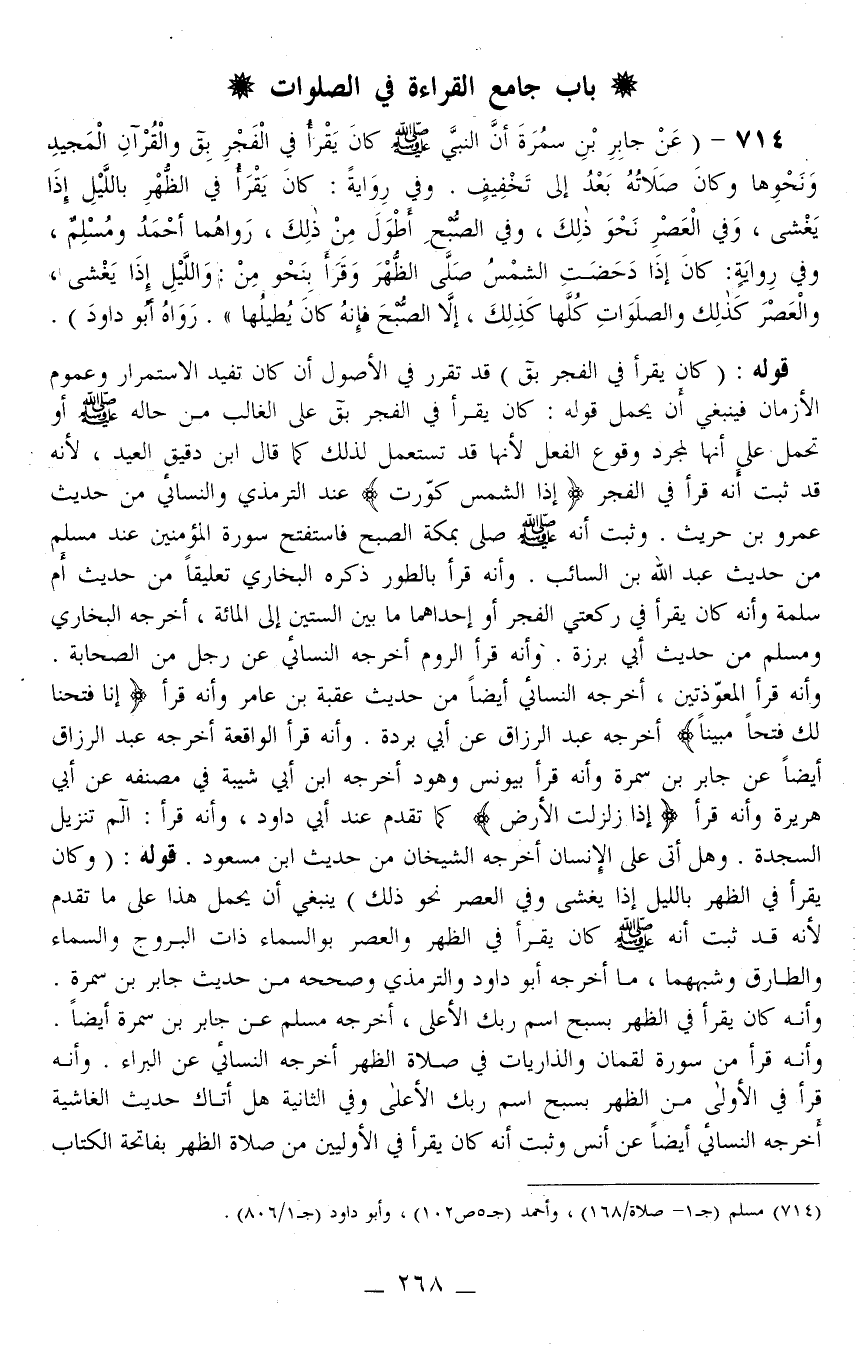 باب جامع القراءة في الصلوات
٧١٤ - ( عَنْ جابِرِ بْنِ سمُرَةَ أنَّ النبيَّ ﷺ كانَ يَقْرأُ في الْفَجْرِ بِقٓ والْقُرْآنِ الْمَجيدِ
وَنَحْوِها وكانَ صَلَاتُهُ بَعْدُ إلى تَخْفِيفٍ . وفي رِوَايةً : كانَ يَقْرَأُ في الظُّهْرِ باللَّيْلِ إِذَا
يَغْشى ، وَفي الْعَصْرِ نَحْوَ ذٰلِكَ ، وفي الصُّبْحِ أَطْوَلَ مِنْ ذٰلِكَ ، رَواهُما أحْمَدُ ومُسْلِمٌ ،
وفي رِوايَةٍ: كانَ إذَا دَحَضَتِ الشمْسُ صَلَّى الظُّهْرَ وَقَرَأَ بِنَحْوِ مِنْ : وَاللَّيْلِ إِذَا يَغْشى ،
والْعَصْرَ كَذٰلِك والصلَوَاتِ كُلَّها كَذٰلِكَ ، إلَّا الصُّبْحَ فإنهُ كانَ يُطيلُها » . رَوَاهُ أَبُو داودَ ) .
قوله : ( كان يقرأ في الفجر بقٓ ) قد تقرر في الأصول أن كان تفيد الاستمرار وعموم
الأزمان فينبغي أن يحمل قوله : كان يقرأ في الفجر بقٓ على الغالب من حاله ﷺ أو
تحمل على أنها لمجرد وقوع الفعل لأنها قد تستعمل لذلك كما قال ابن دقيق العيد ، لأنه
قد ثبت أنه قرأ في الفجر ﴿ إذا الشمس كوّرت ﴾ عند الترمذي والنسائي من حديث
عمرو بن حريث . وثبت أنه ﷺ صلى بمكة الصبح فاستفتح سورة المؤمنين عند مسلم
من حديث عبد الله بن السائب . وأنه قرأ بالطور ذكره البخاري تعليقاً من حديث أم
سلمة وأنه كان يقرأ في ركعتي الفجر أو إحداهما ما بين الستين إلى المائة ، أخرجه البخاري
ومسلم من حديث أبي برزة . وأنه قرأ الروم أخرجه النسائي عن رجل من الصحابة .
وأنه قرأ المعوّذتين ، أخرجه النسائي أيضاً من حديث عقبة بن عامر وأنه قرأ ﴿ إنا فتحنا
لك فتحاً مبيناً﴾ أخرجه عبد الرزاق عن أبي بردة . وأنه قرأ الواقعة أخرجه عبد الرزاق
أيضاً عن جابر بن سمرة وأنه قرأ بيونس وهود أخرجه ابن أبي شيبة في مصنفه عن أبي
هريرة وأنه قرأ ﴿ إذا زلزلت الأرض ﴾ كما تقدم عند أبي داود ، وأنه قرأ : الٓم تنزيل
السجدة . وهل أتى على الإنسان أخرجه الشيخان من حديث ابن مسعود . قوله : ( وكان
يقرأ في الظهر بالليل إذا يغشى وفي العصر نحو ذلك ) ينبغي أن يحمل هذا على ما تقدم
لأنه قد ثبت أنه ﷺ كان يقرأ في الظهر والعصر بوالسماء ذات البروج والسماء
والطارق وشبههما ، ما أخرجه أبو داود والترمذي وصححه من حديث جابر بن سمرة .
وأنه كان يقرأ في الظهر بسبح اسم ربك الأعلى ، أخرجه مسلم عن جابر بن سمرة أيضاً .
وأنه قرأ من سورة لقمان والذاريات في صلاة الظهر أخرجه النسائي عن البراء . وأنه
قرأ في الأولىٰ من الظهر بسبح اسم ربك الأعلىٰ وفي الثانية هل أتاك حديث الغاشية
أخرجه النسائي أيضاً عن أنس وثبت أنه كان يقرأ في الأوليين من صلاة الظهر بفاتحة الكتاب
(٧١٤) مسلم (جـ١- صلاة/١٦٨) ، وأحمد (جـ٥ص١٠٢) ، وأبو داود (جـ١/٨٠٦) .
ـ ٢٦٨ ـ